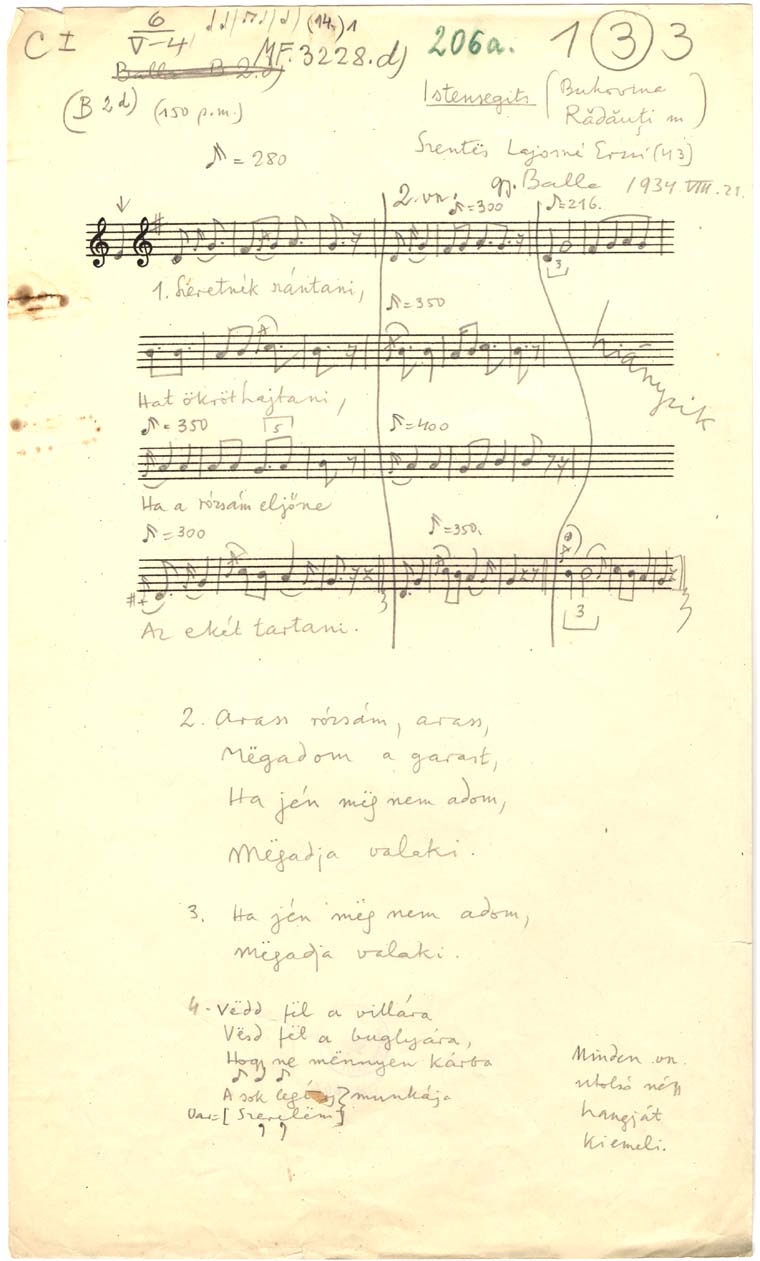 C I 6/V-4 (14.) 1
MF. 3228.d) 206a. 1 ③ 3
Balla B 2.d)
(B 2d) (150 p.m.)
Istensegits (Bukovina
Rădăuți m)
Szentes Lajosné Erzsi (43)
gy. Balla 1934. VIII. 21.
♪ = 280
2. vn. ♪=300 ♪=216.
3
1. Szeretnék szántani,
♪=350
hiányzik
Hat ökröt hajtani,
♪ = 350 5 ♪=400
Ha a rózsám eljőne
♪ = 300 ♪=350.
3
Az ekét tartani.
2. Arass rózsám, arass,
Mëgadom a garast,
Ha jén mëg nem adom,
Mëgadja valaki.
3. Ha jén mëg nem adom,
Mëgadja valaki.
4. Vëdd fël a villára
Vësd fël a buglyára,
Hogy ne mënnyen kárba
A sok legény munkája
Var=[Szerelëm]
Minden vn.
utolsó négy
hangját
kiemeli.